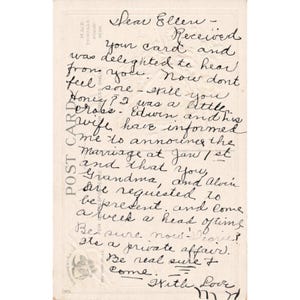 Dear Ellen -
Received
your card and
was delighted to hear
from you. Now dont
feel sore - Will you
Honey? I was a little
cross. Edwin and his
wife have informed
me to announce the
Marriage at Jan 1st
and that you,
Grandma, and Alvin
are requested to
be present, and come
a week a head of time
Be sure now
Its a private affair.
Be real sure &
come.
With Love
POST CARD